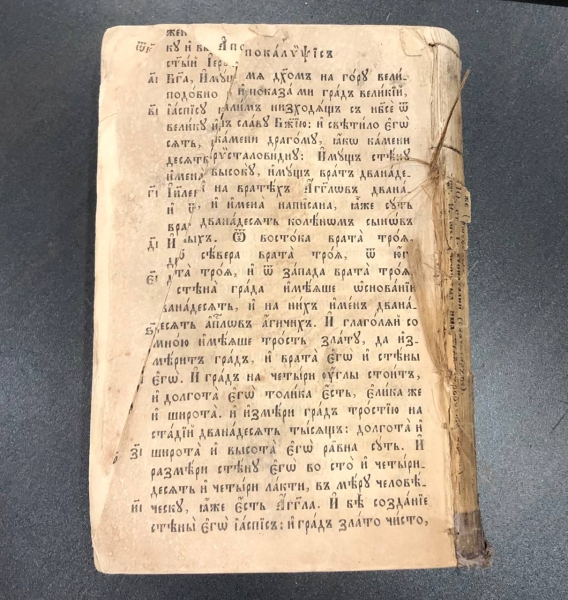 жен
покалѷѱїсъ
ку и
стый Іер
а҃і бг҃а, и҆мущ мѧ дх҃омъ на го́ру вели-
подобно и҆ показа ми гра́дъ вели́кїй,
в҃і іаспису низходѧщъ съ нб҃се ѿ
велику сла́ву бж҃їю: и҆ свѣти́ло є҆гѡ̀
сѧтъ, ка́мени драго́му, ꙗ҆́кѡ ка́мени
десѧт крѷсталови́дну: И҆му́щъ стѣ́ну
имена высо́ку, и҆му́щъ вра́тъ двана́де-
г҃і на вратѣ́хъ а҆́гг҃лѡвъ двана-
и҆ и҆мена̀ напи́сана, ꙗ҆̀же су́ть
вра двана́десѧть колѣ́нѡмъ сынѡ́въ
д҃і ѿ восто́ка врата̀ троѧ̀,
сѣ́вера врата̀ троѧ̀, ѿ ю҆́г
троѧ̀, и҆ ѿ за́пада врата̀ троѧ̀
стѣна̀ гра́да и҆мѣ́ѧше ѡ҆снова́нїй
двана́десѧть, и҆ на ни́хъ и҆ме́нъ двана-
де́сѧть а҆пⷭ҇лѡвъ а҆́гнчихъ. И҆ глаго́лѧй со
мно́ю и҆мѣ́ѧше тро́сть зла́ту, да и҆з-
мѣ́ритъ гра́дъ, и҆ врата̀ є҆гѡ̀ и҆ стѣ́ны
є҆гѡ̀. И҆ гра́дъ на четы́ри ᲂу҆́глы стои́тъ,
и҆ долгота̀ є҆гѡ̀ толи́ка є҆́сть, є҆ли́ка же
и҆ широта̀. и҆ и҆змѣ́ри гра́дъ тро́стїю на
ста́дїй двана́десѧть ты́сѧщъ: долгота̀ и҆
з҃і широта̀ и҆ высота̀ є҆гѡ̀ равна̀ су́ть. И҆
размѣ́ри стѣ́ну є҆гѡ̀ во сто̀ и҆ четы́ри-
десѧть и҆ четы́ри ла́кти, въ мѣ́ру человѣ́-
и҃і ческу, ꙗ҆́же є҆́сть а҆́гг҃ла. И҆ бѣ̀ созда́нїе
стѣны̀ є҆гѡ̀ і҆а́спїсъ: и҆ гра́дъ зла́то чи́сто,